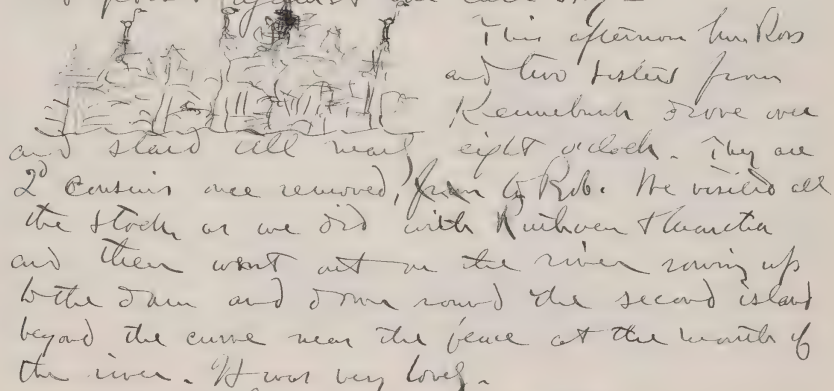 against
This afternoon Mrs Ross
and two sisters from
Kennebunk drove over
and staid till nearly eight o'clock. They are
2d cousins once removed, to Rob. We visited all
the stock as we did with Ruthven & Martha
and then went out on the river rowing up
to the dam and down round the second island
beyond the curve near the fence at the mouth of
the river. It was very lovely.